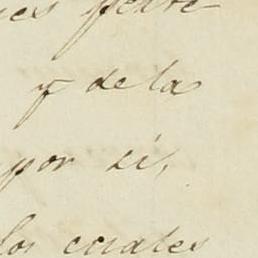 y de la
por sí,
los cuales